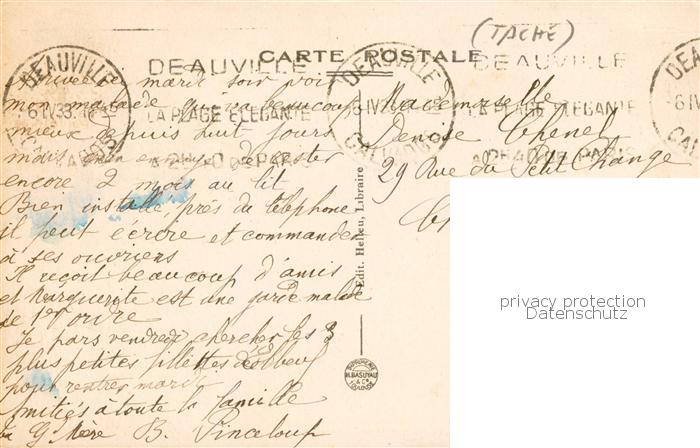 (TACHE)
CARTE POSTALE
DEAUVILLE
DEAUVILLE
LA PLAGE ELEGANTE
LA PLAGE ELEGANTE
DEAUVILLE
6 IV 33
CALVADOS
DEAUVILLE
6 IV
CALVADOS
6 IV
Arrivée ici mardi soir voir
mon malade qui va beaucoup
mieux depuis huit jours
mais on en de rester
encore 2 mois au lit
Bien installé près du téléphone
il peut écrire et commander
à ses ouvriers
Il reçoit beaucoup d'amis
et Marguerite est une garde malade
de 1er ordre
Je pars vendredi chercher les 3
plus petites fillettes d'Elbeuf
pour rentrer mardi
Amitiés à toute la famille
G Mère B. Pinceloup
Mademoiselle
Denise Thenel
29 Rue du Petit Change
Edit. Helieu, Libraire
privacy protection
Datenschutz